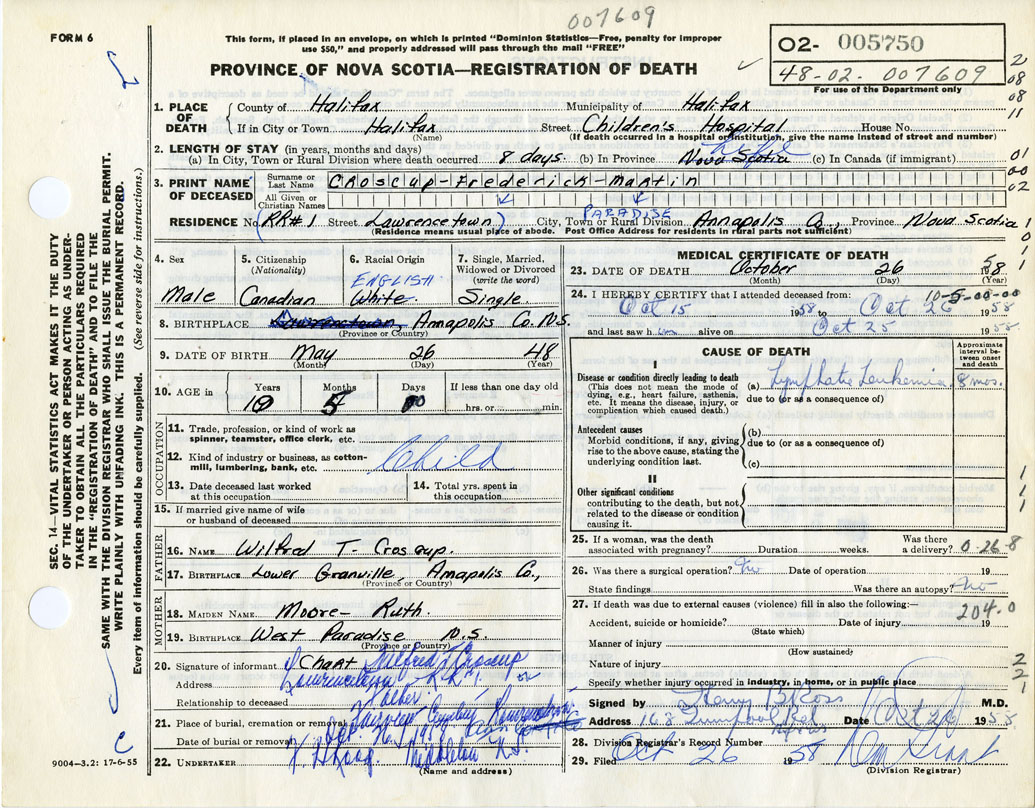 007609
FORM 6
This form, if placed in an envelope, on which is printed "Dominion Statistics—Free, penalty for improper
use $50," and properly addressed will pass through the mail "FREE"
PROVINCE OF NOVA SCOTIA—REGISTRATION OF DEATH
02- 005750
48-02. 007609
For use of the Department only
1. PLACE OF DEATH
County of Halifax Municipality of Halifax
If in City or Town Halifax Street Children's Hospital House No.
(Name) (If death occurred in a hospital or institution, give the name instead of street and number)
2. LENGTH OF STAY (in years, months and days)
(a) In City, Town or Rural Division where death occurred 8 days. (b) In Province Nova Scotia (c) In Canada (if immigrant)
3. PRINT NAME OF DECEASED
Surname or Last Name Croscup-Frederick-Martin
All Given or Christian Names
PARADISE
RESIDENCE No. RR#1 Street Lawrencetown City, Town or Rural Division Annapolis Co., Province Nova Scotia
(Residence means usual place of abode. Post Office Address for residents in rural parts not sufficient)
4. Sex
Male
5. Citizenship (Nationality)
Canadian
6. Racial Origin
ENGLISH
White
7. Single, Married, Widowed or Divorced (write the word)
Single
8. BIRTHPLACE Lawrencetown, Annapolis Co. N.S.
(Province or Country)
9. DATE OF BIRTH May 26 48
(Month) (Day) (Year)
10. AGE in Years Months Days If less than one day old
10 5 00 hrs. or min.
OCCUPATION
11. Trade, profession, or kind of work as spinner, teamster, office clerk, etc.
12. Kind of industry or business, as cotton-mill, lumbering, bank, etc.
Child
13. Date deceased last worked at this occupation
14. Total yrs. spent in this occupation
15. If married give name of wife or husband of deceased
FATHER
16. NAME Wilfred T. Croscup.
17. BIRTHPLACE Lower Granville, Annapolis Co.,
(Province or Country)
MOTHER
18. MAIDEN NAME Moore- Ruth.
19. BIRTHPLACE West Paradise N.S.
(Province or Country)
20. Signature of informant Chart Wilfred T Croscup
Address Lawrencetown RR 1
Relationship to deceased Father
21. Place of burial, cremation or removal Fairview Lawrencetown
Date of burial or removal 1958
22. UNDERTAKER Middleton N.S.
(Name and address)
9004—3.2: 17-6-55
MEDICAL CERTIFICATE OF DEATH
23. DATE OF DEATH October 26 1958
(Month) (Day) (Year)
10-5-00-00
24. I HEREBY CERTIFY that I attended deceased from:
Oct 15 1958 to Oct 26 1958
and last saw him alive on Oct 25 1958
CAUSE OF DEATH
Approximate interval between onset and death
I
Disease or condition directly leading to death
(This does not mean the mode of dying, e.g., heart failure, asthenia, etc. It means the disease, injury, or complication which caused death.)
(a) Lymphatic Leukemia 8 mos.
due to (or as a consequence of)
Antecedent causes
Morbid conditions, if any, giving rise to the above cause, stating the underlying condition last.
(b)
due to (or as a consequence of)
(c)
II
Other significant conditions
contributing to the death, but not related to the disease or condition causing it.
25. If a woman, was the death associated with pregnancy? Duration weeks. Was there a delivery?
0-26-8
26. Was there a surgical operation? No Date of operation 19
State findings Was there an autopsy? No
27. If death was due to external causes (violence) fill in also the following:—
204.0
Accident, suicide or homicide? Date of injury 19
(State which)
Manner of injury
(How sustained)
Nature of injury
Specify whether injury occurred in industry, in home, or in public place
Signed by Henry B Ross M.D.
Address 168 Date Oct 26 1958
28. Division Registrar's Record Number
29. Filed Oct 26 1958
(Division Registrar)
SEC. 14—VITAL STATISTICS ACT MAKES IT THE DUTY
OF THE UNDERTAKER OR PERSON ACTING AS UNDER-
TAKER TO OBTAIN ALL THE PARTICULARS REQUIRED
IN THE "REGISTRATION OF DEATH" AND TO FILE THE
SAME WITH THE DIVISION REGISTRAR WHO SHALL ISSUE THE BURIAL PERMIT.
WRITE PLAINLY WITH UNFADING INK. THIS IS A PERMANENT RECORD.
Every item of information should be carefully supplied. (See reverse side for instructions.)
2
08
08
11
01
00
02
1
0
1
1
1
1
1
2
2
1